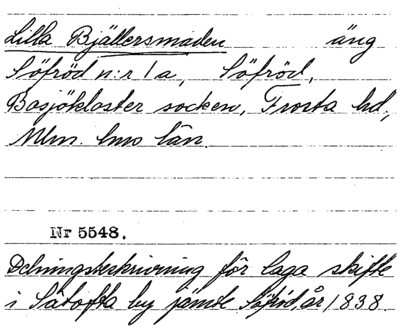 Lilla Bjällersmaden äng
Söfröd n:r 1a, Söfröd,
Bosjökloster socken, Frosta hd,
Mlm. hus län.
Nr 5548.
Delningsbeskrivning för laga skifte
i Sätofta by jämte Söfröd år 1838.